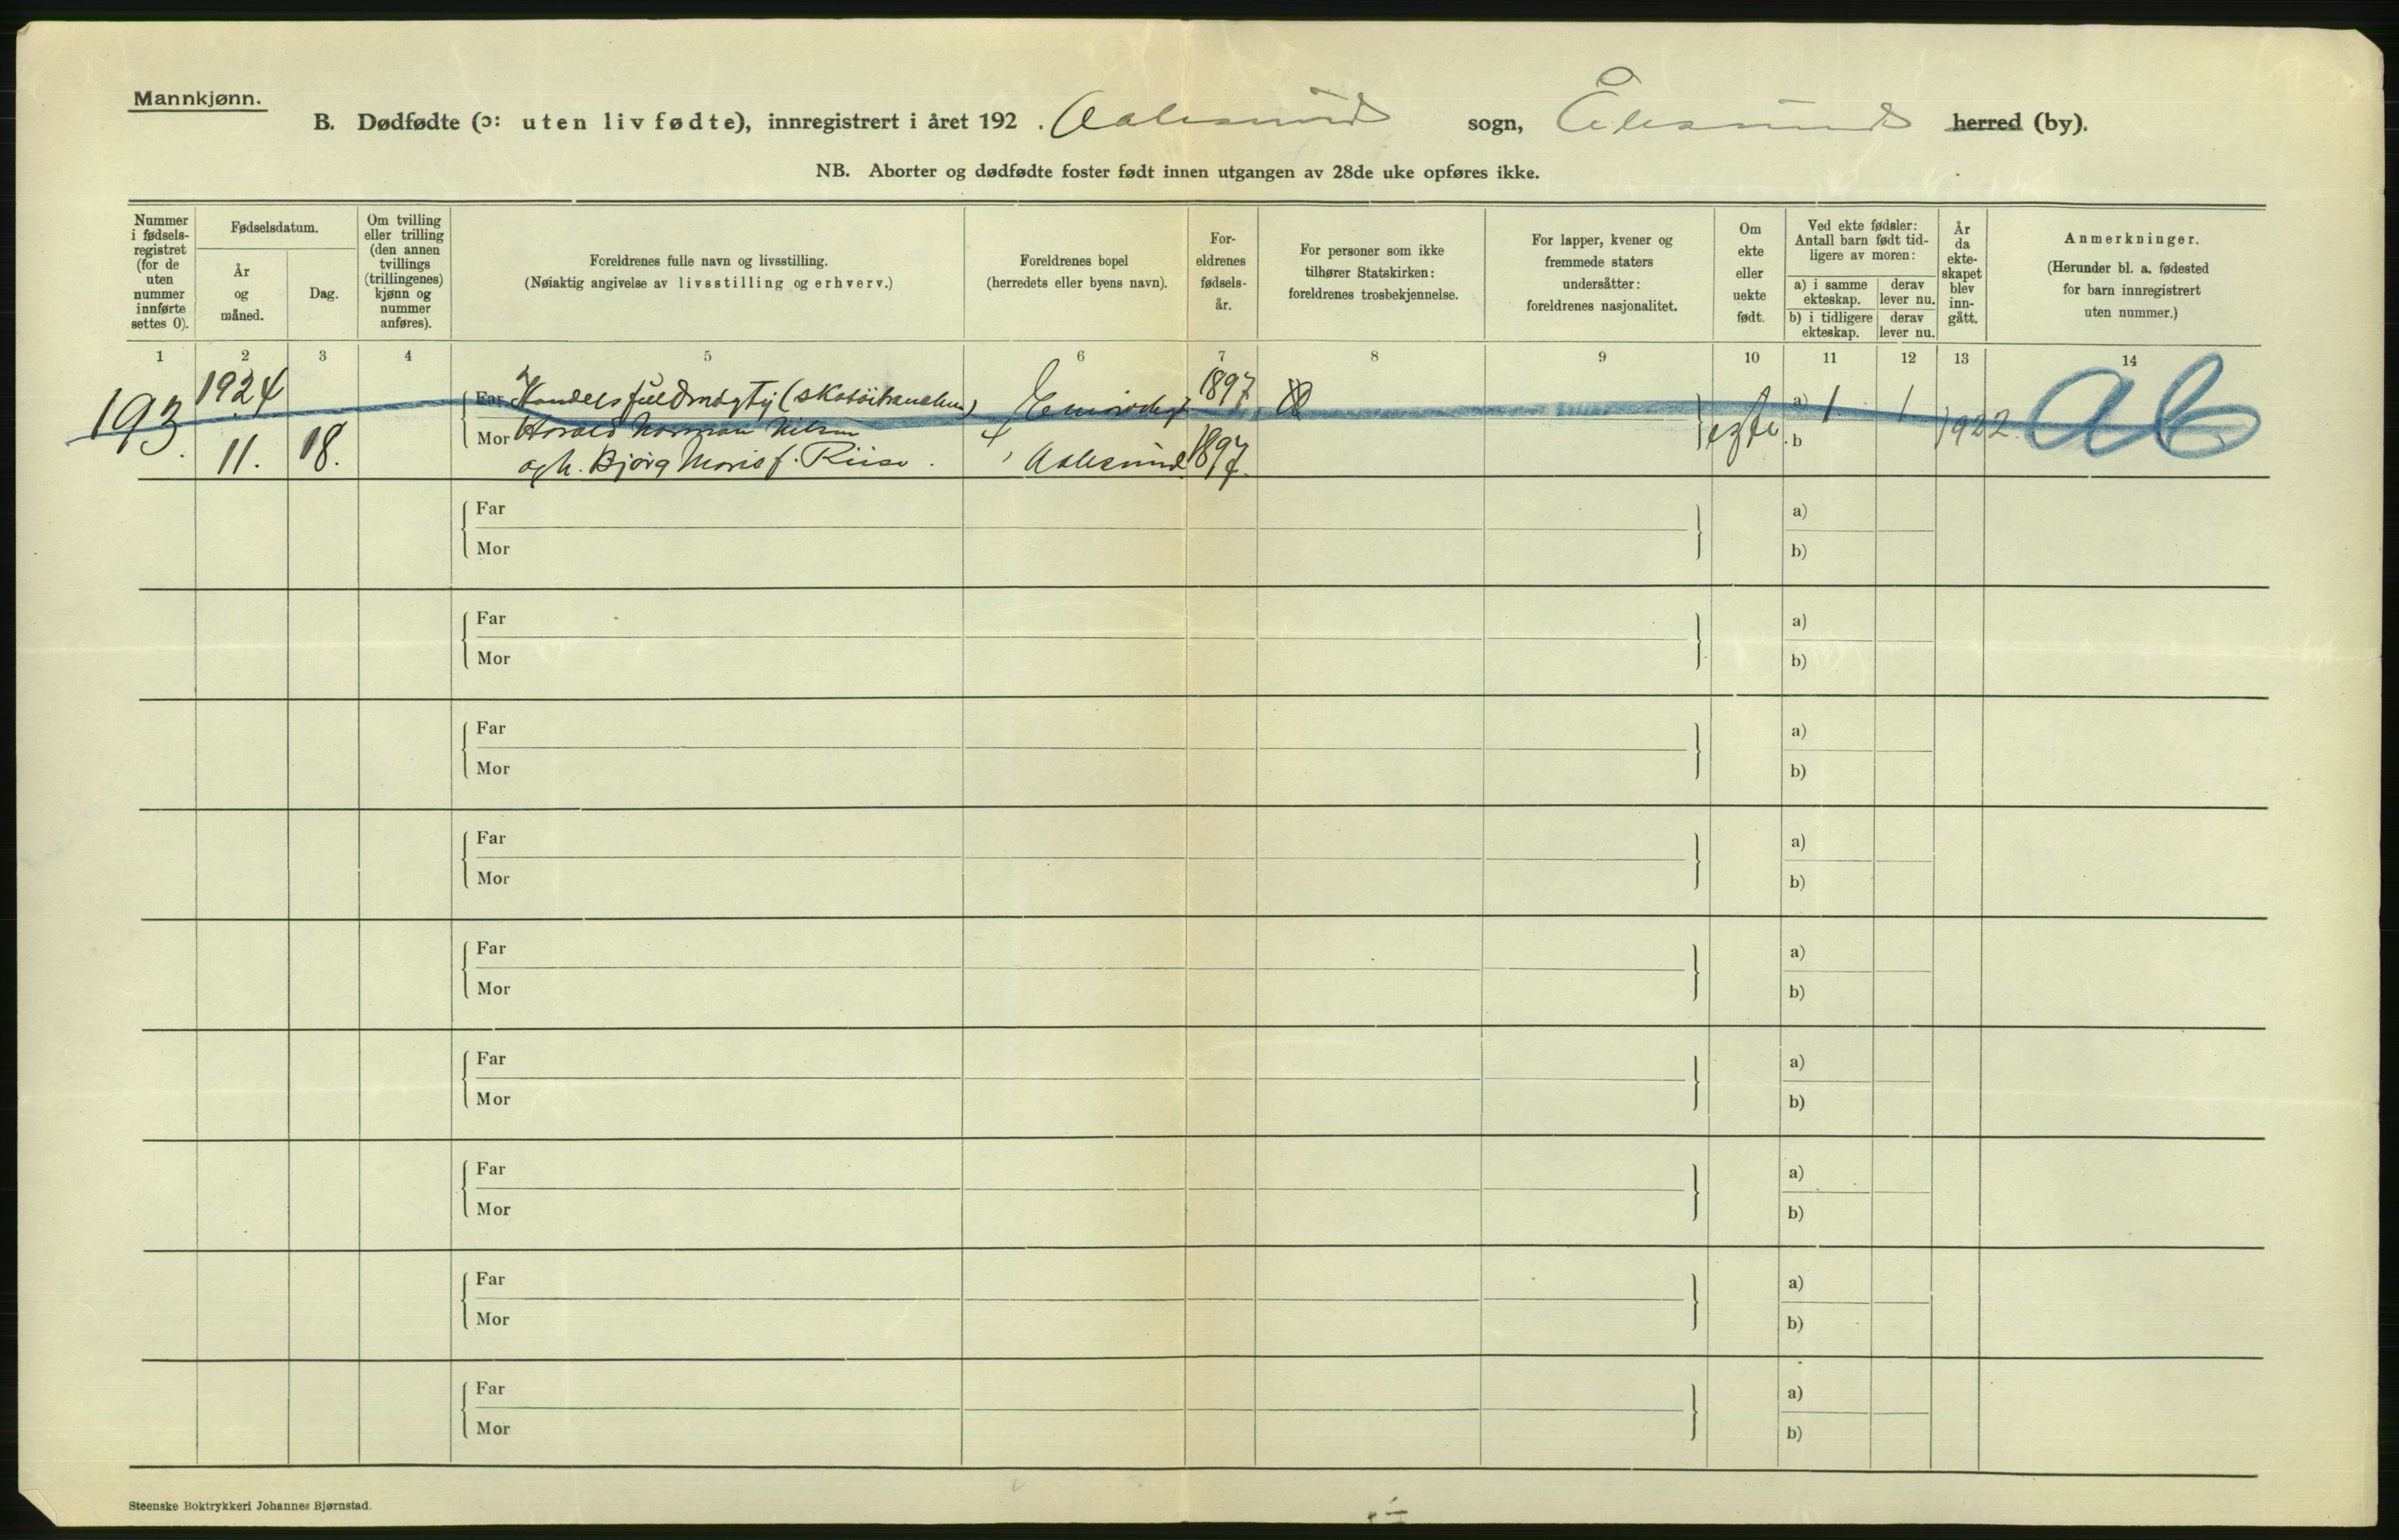 Mannkjønn.
B. Dødfødte (ɔ: uten liv fødte), innregistrert i året 192 . Aalesund sogn, Ålesund herred (by).
NB. Aborter og dødfødte foster født innen utgangen av 28de uke opføres ikke.
Nummer i fødsels-registret (for de uten nummer innførte settes 0).
Fødselsdatum.
År og måned.
Dag.
Om tvilling eller trilling (den annen tvillings (trillingenes) kjønn og nummer anføres).
Foreldrenes fulle navn og livsstilling.
(Nøiaktig angivelse av livsstilling og erhverv.)
Foreldrenes bopel
(herredets eller byens navn).
For-eldrenes fødsels-år.
For personer som ikke tilhører Statskirken: foreldrenes trosbekjennelse.
For lapper, kvener og fremmede staters undersåtter: foreldrenes nasjonalitet.
Om ekte eller uekte født.
Ved ekte fødsler: Antall barn født tid-ligere av moren:
a) i samme ekteskap.
derav lever nu.
b) i tidligere ekteskap.
derav lever nu.
År da ekte-skapet blev inn-gått.
Anmerkninger.
(Herunder bl. a. fødested for barn innregistrert uten nummer.)
1 2 3 4 5 6 7 8 9 10 11 12 13 14
193. 1924 11. 18.
Far Handelsfuldmægtig 1897
Mor Harald Norman Nilsen
og h. Bjørg Marie f. Riise. Aalesund 1897.
egte a) 1 1 1922. Ab
b
Far a)
Mor b)
Far a)
Mor b)
Far a)
Mor b)
Far a)
Mor b)
Far a)
Mor b)
Far a)
Mor b)
Far a)
Mor b)
Far a)
Mor b)
Far a)
Mor b)
Steenske Boktrykkeri Johannes Bjørnstad.